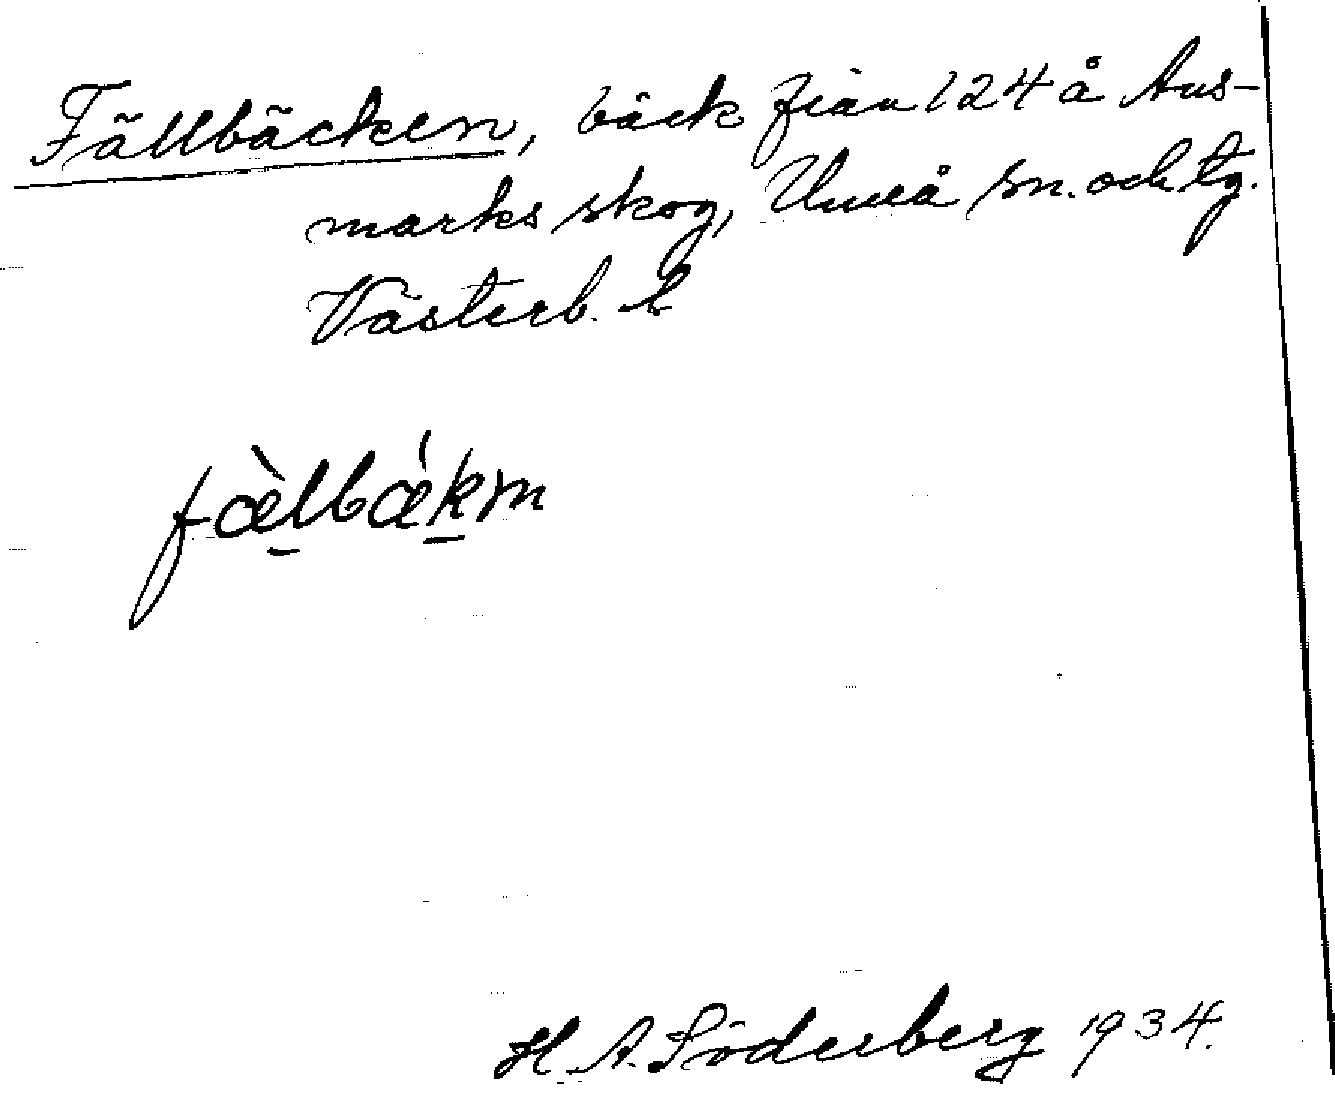 Fällbäcken, bäck från 124 å Ans-
marks skog, Umeå sn. och tg.
Västerb. l.
fæ̀lbǽkɪn
H. A. Söderberg 1934.